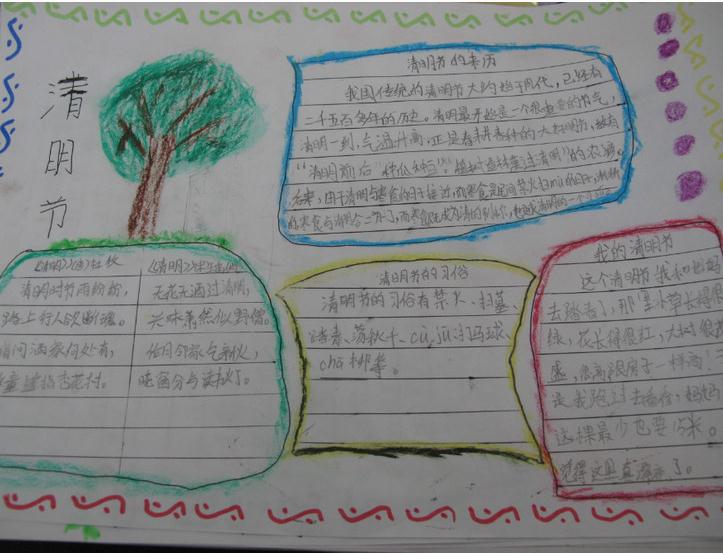 清明节
清明节的来历
我国传统的清明节大约始于周代，已经有
二千五百多年的历史。清明最开始是一个很重要的节气，
清明一到，气温升高，正是春耕春种的大好时节，故有
“清明前后，种瓜种豆”。植树造林，莫过清明”的农谚。
后来，由于清明与寒食的日子接近，而寒食是民间禁火扫墓的日子，渐渐的
寒食与清明合二为了，而寒食
《清明》(唐)杜牧
清明时节雨纷纷，
路上行人欲断魂。
借问酒家何处有，
杏花村。
《清明》
无花无酒过清明，
兴味萧然似野僧。
昨日邻家乞新火，
晓窗分与读书灯。
清明节的习俗
清明节的习俗有禁火、扫墓、
踏青、荡秋千、cù jū、打马球、
chā柳等。
我的清明节
这个清明节我和妈妈
去踏青了，那里小草长得很
绿，花长得很红，大树很茂
盛，很高跟房子一样高！
是我跑过去看看，妈妈
这棵最少也要15米。
觉得这里真漂亮了。